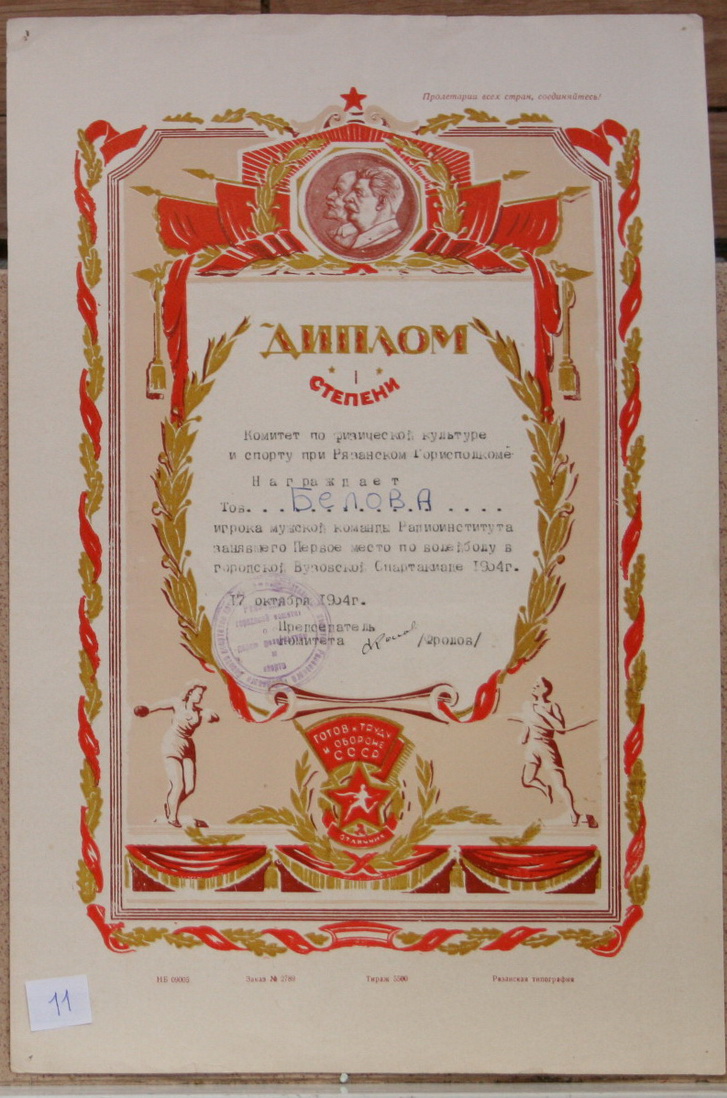 Пролетарии всех стран, соединяйтесь!
ДИПЛОМ
I
СТЕПЕНИ
Комитет по физической культуре
и спорту при Рязанском Горисполкоме
Награждает
Тов. . . . Б.Е.Л.О.В.А . . . .
игрока мужской команды Радиоинститута
занявшего Первое место по волейболу в
городской Вузовской Спартакиаде 1954г.
17 октября 1954г.
Председатель
Комитета /Фролов/
ГОТОВ К ТРУДУ
И ОБОРОНЕ
СССР
ОТЛИЧНИК
НЕ 09003 Заказ № 2760 Тираж 5500 Рязанская типография
11